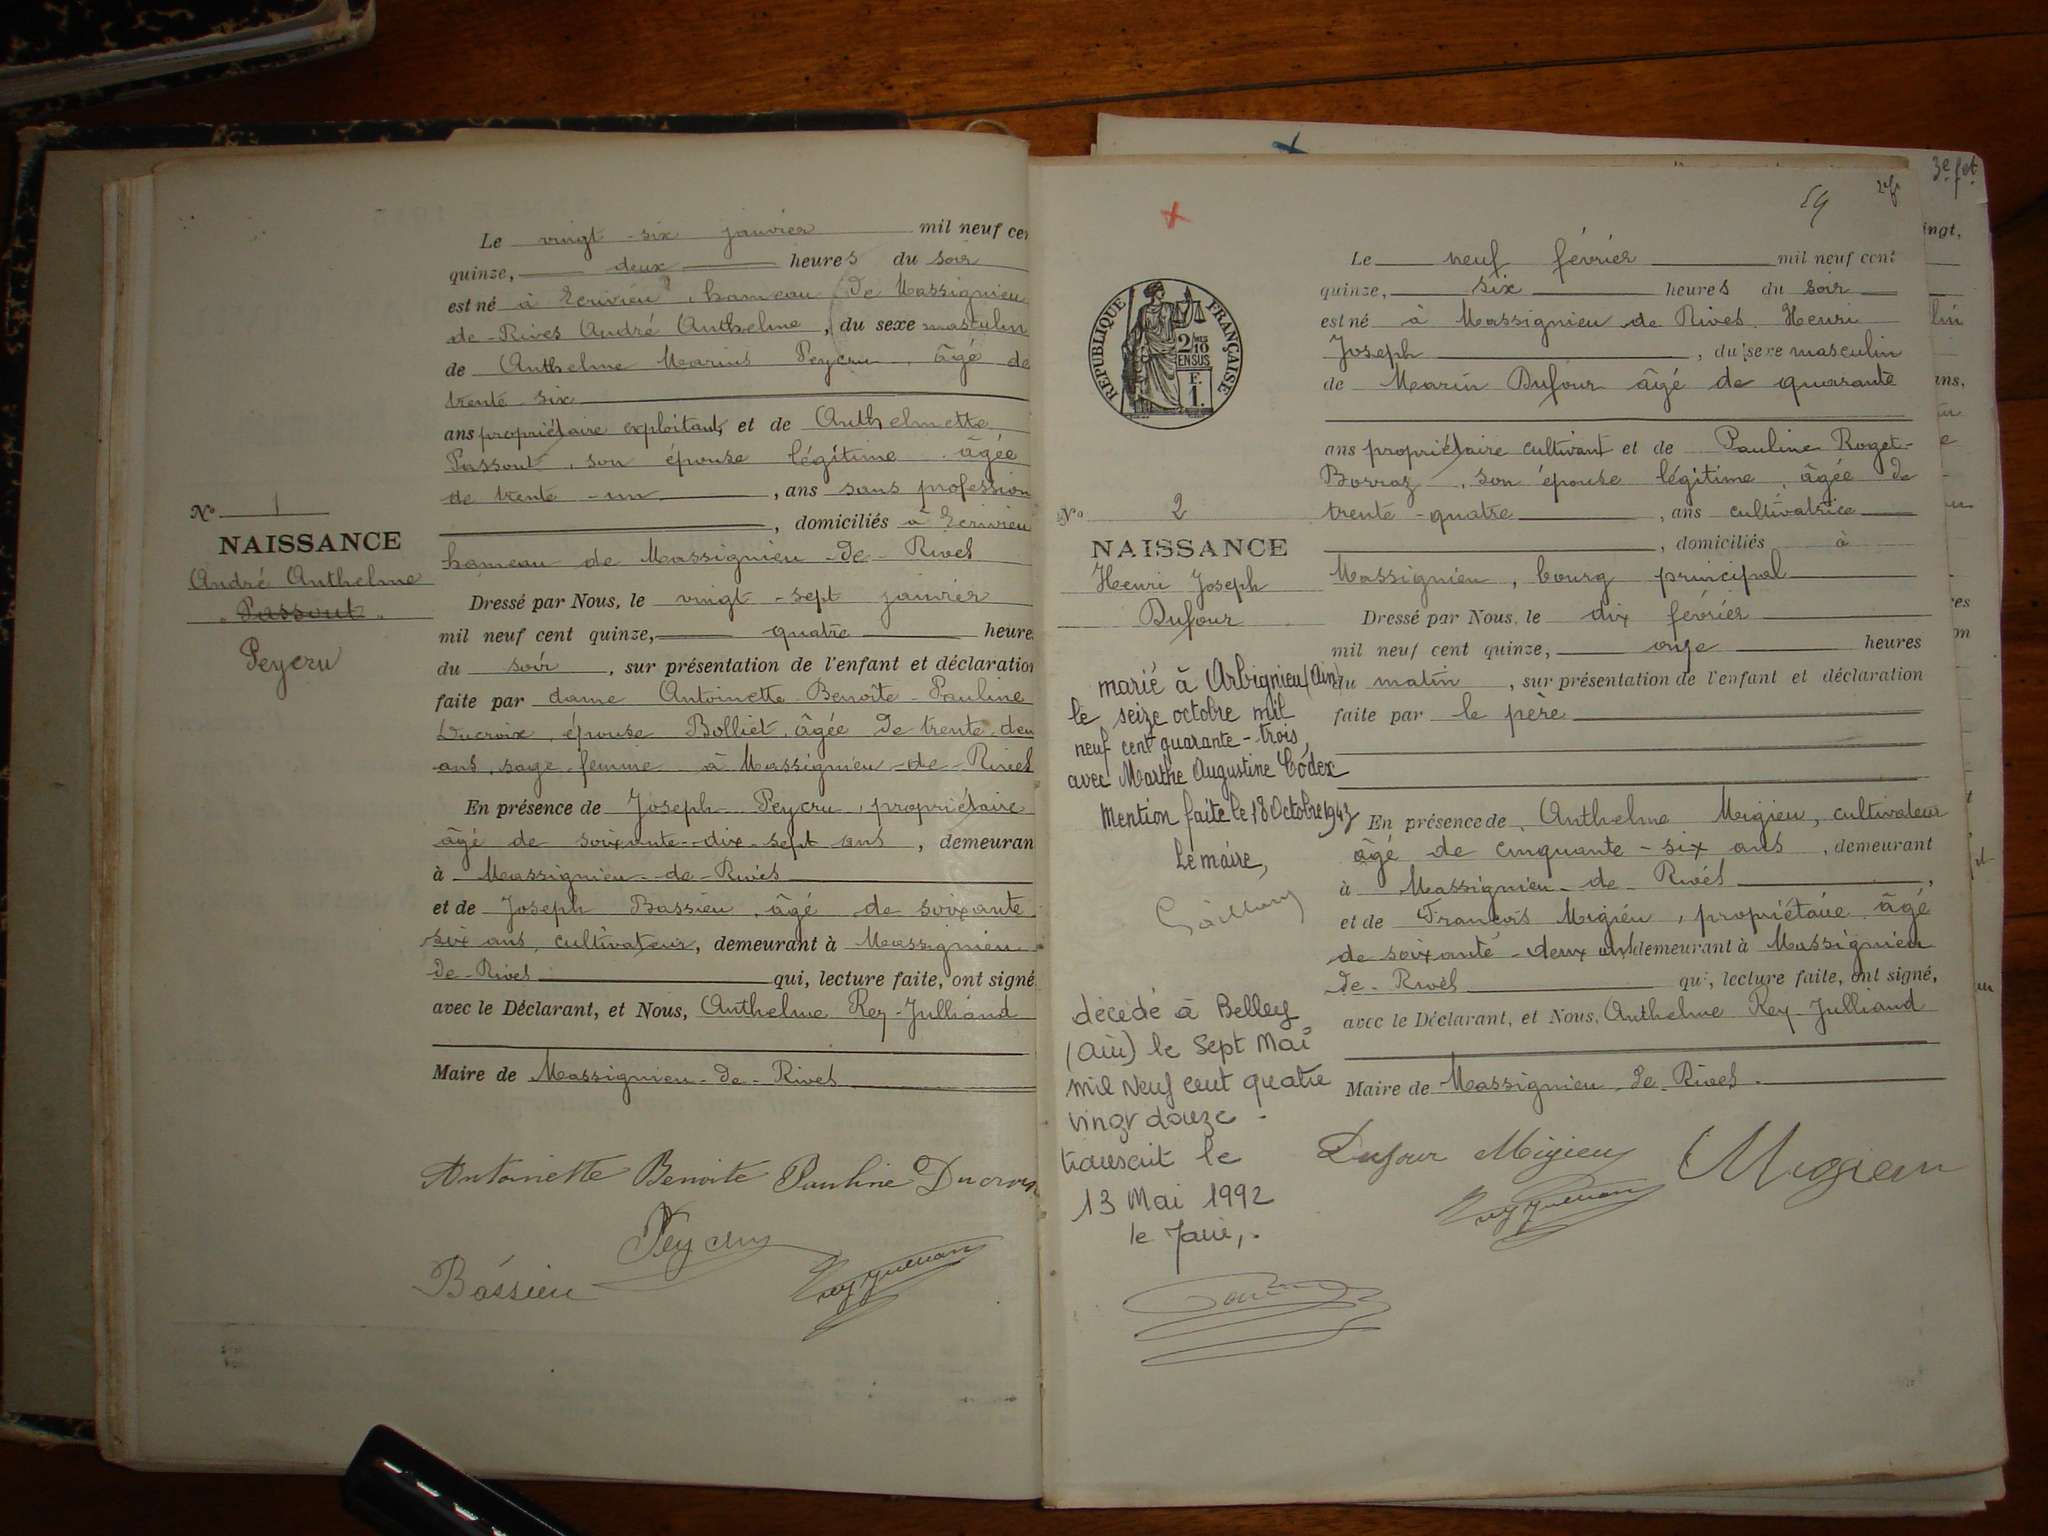 Le vingt-six janvier mil neuf cen
quinze, deux heures du soir
est né à Ecrivieu, hameau de Massignieu
de-Rives André Anthelme, du sexe masculin
de Anthelme Marius Peycru, âgé de
trente-six
ans propriétaire exploitant, et de Anthelmette
Passout, son épouse légitime, âgée
de trente-un, ans sans profession
, domiciliés à Ecrivieu
hameau de Massignieu-de-Rives
Nº 1
NAISSANCE
André Anthelme
Passout
Peycru
Dressé par Nous, le vingt-sept janvier
mil neuf cent quinze, quatre heure
du soir, sur présentation de l'enfant et déclaration
faite par dame Antoinette-Benoîte-Pauline
Ducroix, épouse Bolliet, âgée de trente-deu
ans, sage-femme à Massignieu-de-Rives
En présence de Joseph Peycru, propriétaire
âgé de soixante-dix-sept ans, demeuran
à Massignieu-de-Rives
et de Joseph Bassieu, âgé de soixante
six ans, cultivateur, demeurant à Massignieu
de-Rives qui, lecture faite, ont signé
avec le Déclarant, et Nous, Anthelme Rey-Julliand
Maire de Massignieu-de-Rives
Antoinette Benoite Pauline Ducroix
Peycru
Bassieu
59
3e fet.
Le neuf février mil neuf cent
quinze, six heures du soir
est né à Massignieu de Rives Henri
Joseph, du sexe masculin
de Marin Dufour âgé de quarante
ans propriétaire cultivant et de Pauline Roget-
Borraz, son épouse légitime, âgée de
trente-quatre, ans cultivatrice
, domiciliés à
Massignieu, bourg principal
RÉPUBLIQUE FRANÇAISE
2/10
EN SUS
F.
1.
Nº 2
NAISSANCE
Henri Joseph
Dufour
Dressé par Nous, le dix février
mil neuf cent quinze, onze heures
du matin, sur présentation de l'enfant et déclaration
faite par le père
marié à Arbignieu (Ain)
le seize octobre mil
neuf cent quarante-trois
avec Marthe Augustine Codex
Mention faite le 18 Octobre 1943
Le maire,
En présence de Anthelme Migieu, cultivateur
âgé de cinquante-six ans, demeurant
à Massignieu-de-Rives,
et de François Migieu, propriétaire âgé
de soixante-deux ans demeurant à Massignieu
de-Rives qui, lecture faite, ont signé,
avec le Déclarant, et Nous, Anthelme Rey-Julliand
Maire de Massignieu de Rives.
décédé à Belley
(Ain) le Sept Mai
mil neuf cent quatre
vingt douze.
transcrit le
13 Mai 1992
le Maire,
Dufour Migieu Migieu